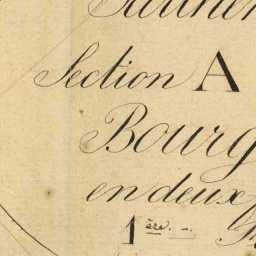 Section A
Bourg
en deux
1ère